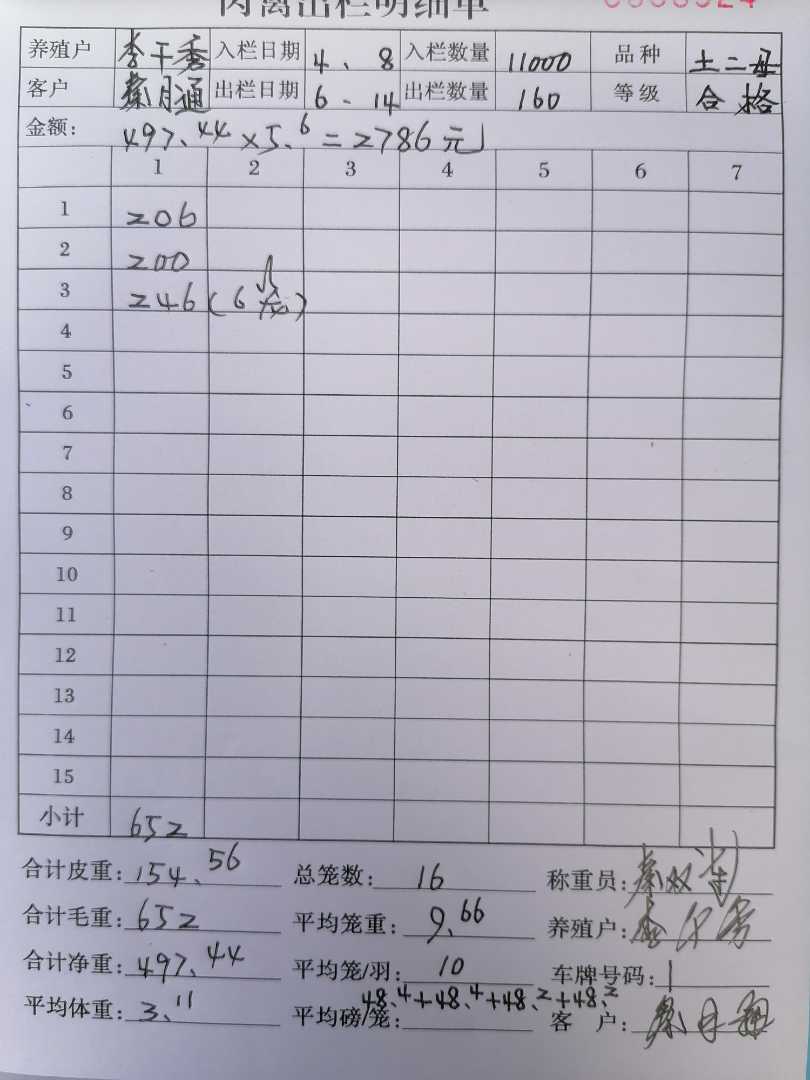 肉禽出栏明细单
养殖户 李干秀 入栏日期 4、8 入栏数量 11000 品种 土二母
客户 秦月通 出栏日期 6-14 出栏数量 160 等级 合格
金额: 497.44×5.6=2786元
1 2 3 4 5 6 7
1 206
2 200
3 246(6笼)
4
5
6
7
8
9
10
11
12
13
14
15
小计 652
合计皮重: 154.56 总笼数: 16 称重员:
合计毛重: 652 平均笼重: 9.66 养殖户:
合计净重: 497.44 平均笼/羽: 10 车牌号码: 1
平均体重: 3.11 平均磅/笼: 48.4+48.4+48.2+48.2 客 户: